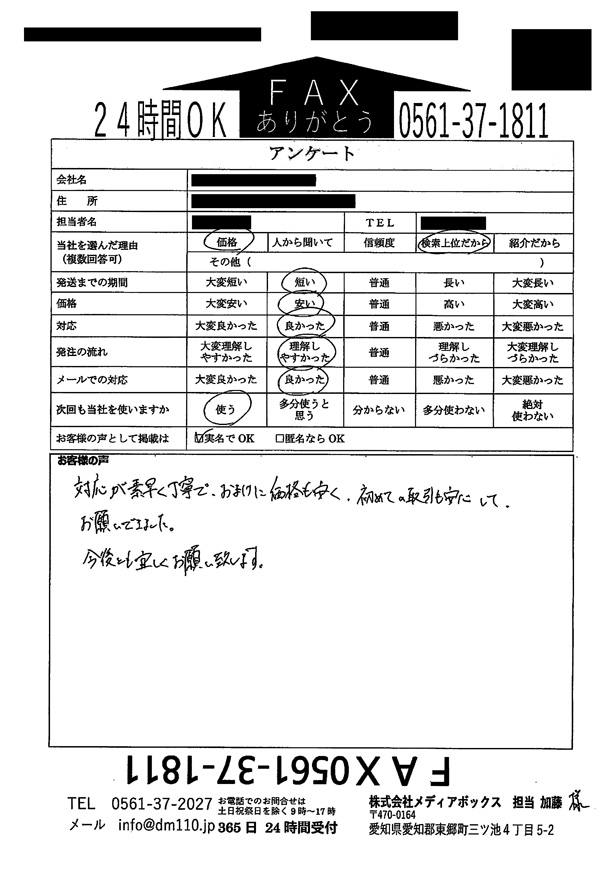 FAX
ありがとう
24時間OK
0561-37-1811
アンケート
会社名
住 所
担当者名 TEL
当社を選んだ理由 価格 人から聞いて 信頼度 検索上位だから 紹介だから
(複数回答可) その他 ( )
発送までの期間 大変短い 短い 普通 長い 大変長い
価格 大変安い 安い 普通 高い 大変高い
対応 大変良かった 良かった 普通 悪かった 大変悪かった
発注の流れ 大変理解しやすかった 理解しやすかった 普通 理解しづらかった 大変理解しづらかった
メールでの対応 大変良かった 良かった 普通 悪かった 大変悪かった
次回も当社を使いますか 使う 多分使うと思う 分からない 多分使わない 絶対使わない
お客様の声として掲載は ☑実名でOK □匿名ならOK
お客様の声
対応が素早く丁寧で、おまけに価格も安く、初めての取引も安心して、
お願いできました。
今後とも宜しくお願い致します。
FAX0561-37-1811
TEL 0561-37-2027 お電話でのお問合せは
土日祝祭日を除く9時～17時
メール info@dm110.jp 365日 24時間受付
株式会社メディアボックス 担当 加藤 様
〒470-0164
愛知県愛知郡東郷町三ツ池4丁目5-2